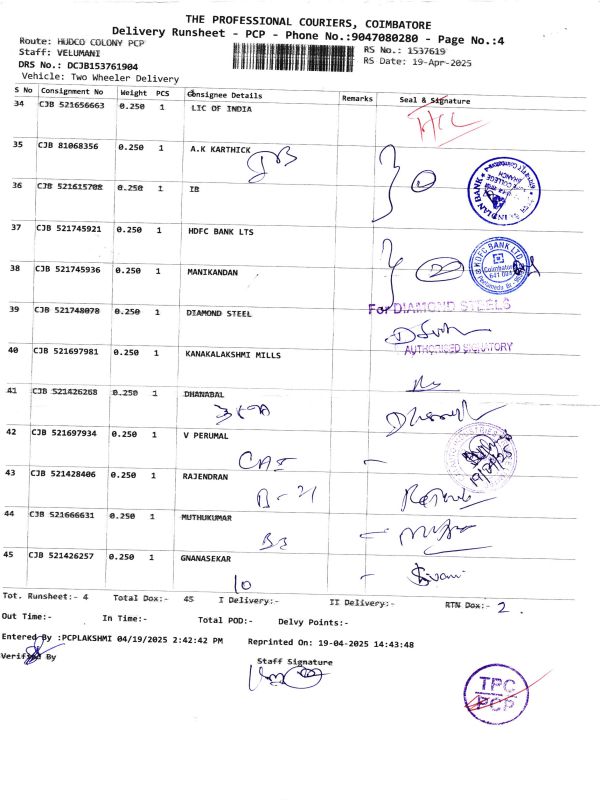 THE PROFESSIONAL COURIERS, COIMBATORE
Delivery Runsheet - PCP - Phone No.:9047080280 - Page No.:4
Route: HUDCO COLONY PCP
RS No.: 1537619
Staff: VELUMANI
RS Date: 19-Apr-2025
DRS No.: DCJB153761904
Vehicle: Two Wheeler Delivery
S No Consignment No Weight PCS Consignee Details Remarks Seal & Signature
34 CJB 521656663 0.250 1 LIC OF INDIA
35 CJB 81068356 0.250 1 A.K KARTHICK
36 CJB 521615708 0.250 1 IB
INDIAN BANK
37 CJB 521745921 0.250 1 HDFC BANK LTS
HDFC BANK LTD
Coimbatore
641 004
38 CJB 521745936 0.250 1 MANIKANDAN
2
39 CJB 521748078 0.250 1 DIAMOND STEEL
For DIAMOND STEELS
AUTHORISED SIGNATORY
40 CJB 521697981 0.250 1 KANAKALAKSHMI MILLS
41 CJB 521426268 0.250 1 DHANABAL
42 CJB 521697934 0.250 1 V PERUMAL
43 CJB 521428406 0.250 1 RAJENDRAN
B - 21
44 CJB 521666631 0.250 1 MUTHUKUMAR
B3
45 CJB 521426257 0.250 1 GNANASEKAR
10
Tot. Runsheet:- 4 Total Dox:- 45 I Delivery:- II Delivery:- RTN Dox:- 2
Out Time:- In Time:- Total POD:- Delvy Points:-
Entered By :PCPLAKSHMI 04/19/2025 2:42:42 PM Reprinted On: 19-04-2025 14:43:48
Verified By
Staff Signature
TPC
PCP